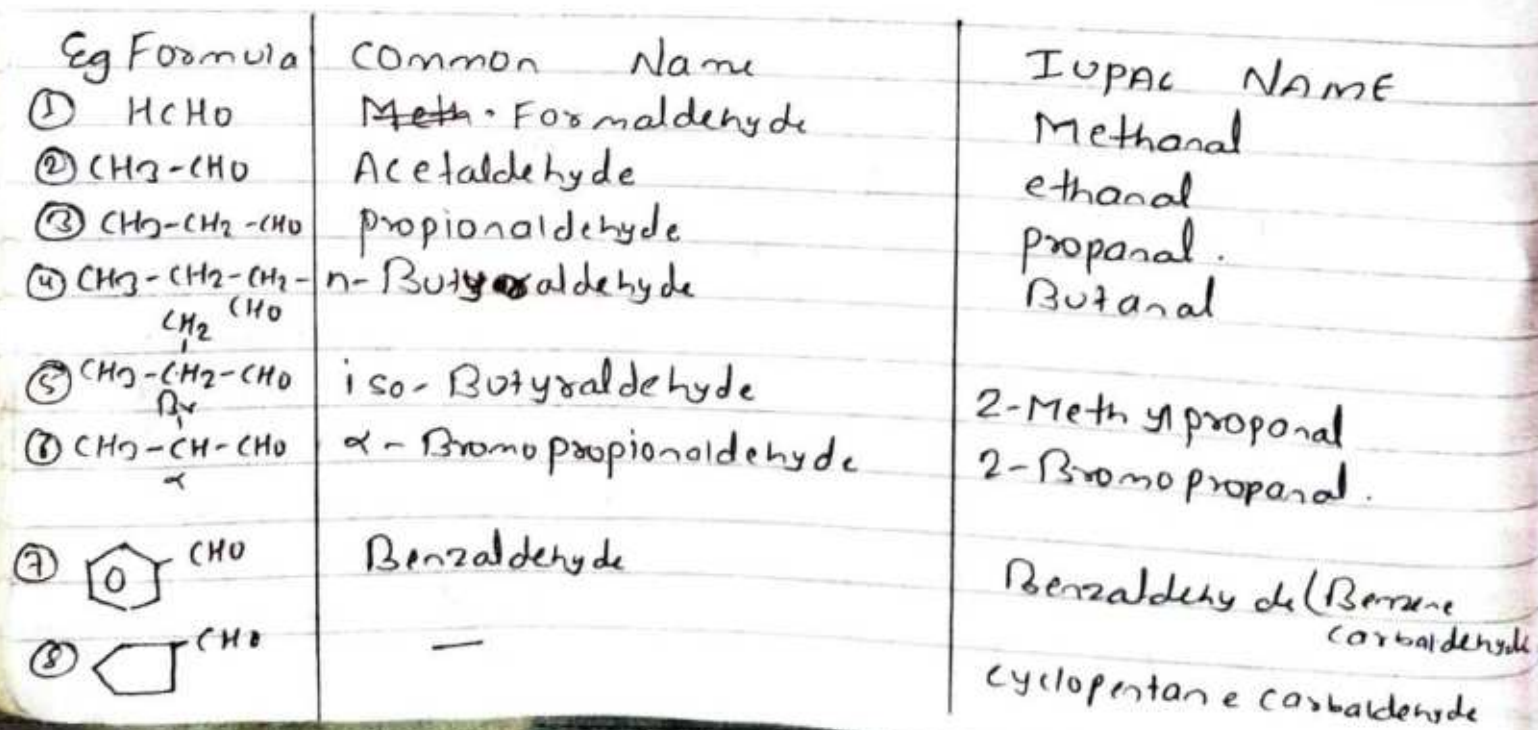 Eg Formula Common Name IUPAC NAME
① HCHO Meth. Formaldehyde Methanal
② CH3-CHO Acetaldehyde ethanal
③ CH3-CH2-CHO propionaldehyde propanal.
④ CH3-CH2-CH2- n-Butyraldehyde Butanal
CHO
CH2
⑤ CH3-CH2-CHO iso-Butyraldehyde 2-Methylpropanal
Br
⑥ CH3-CH-CHO α-Bromopropionaldehyde 2-Bromopropanal.
α
⑦ CHO Benzaldehyde Benzaldehyde (Benzene
carbaldehyde
⑧ CHO — cyclopentane carbaldehyde